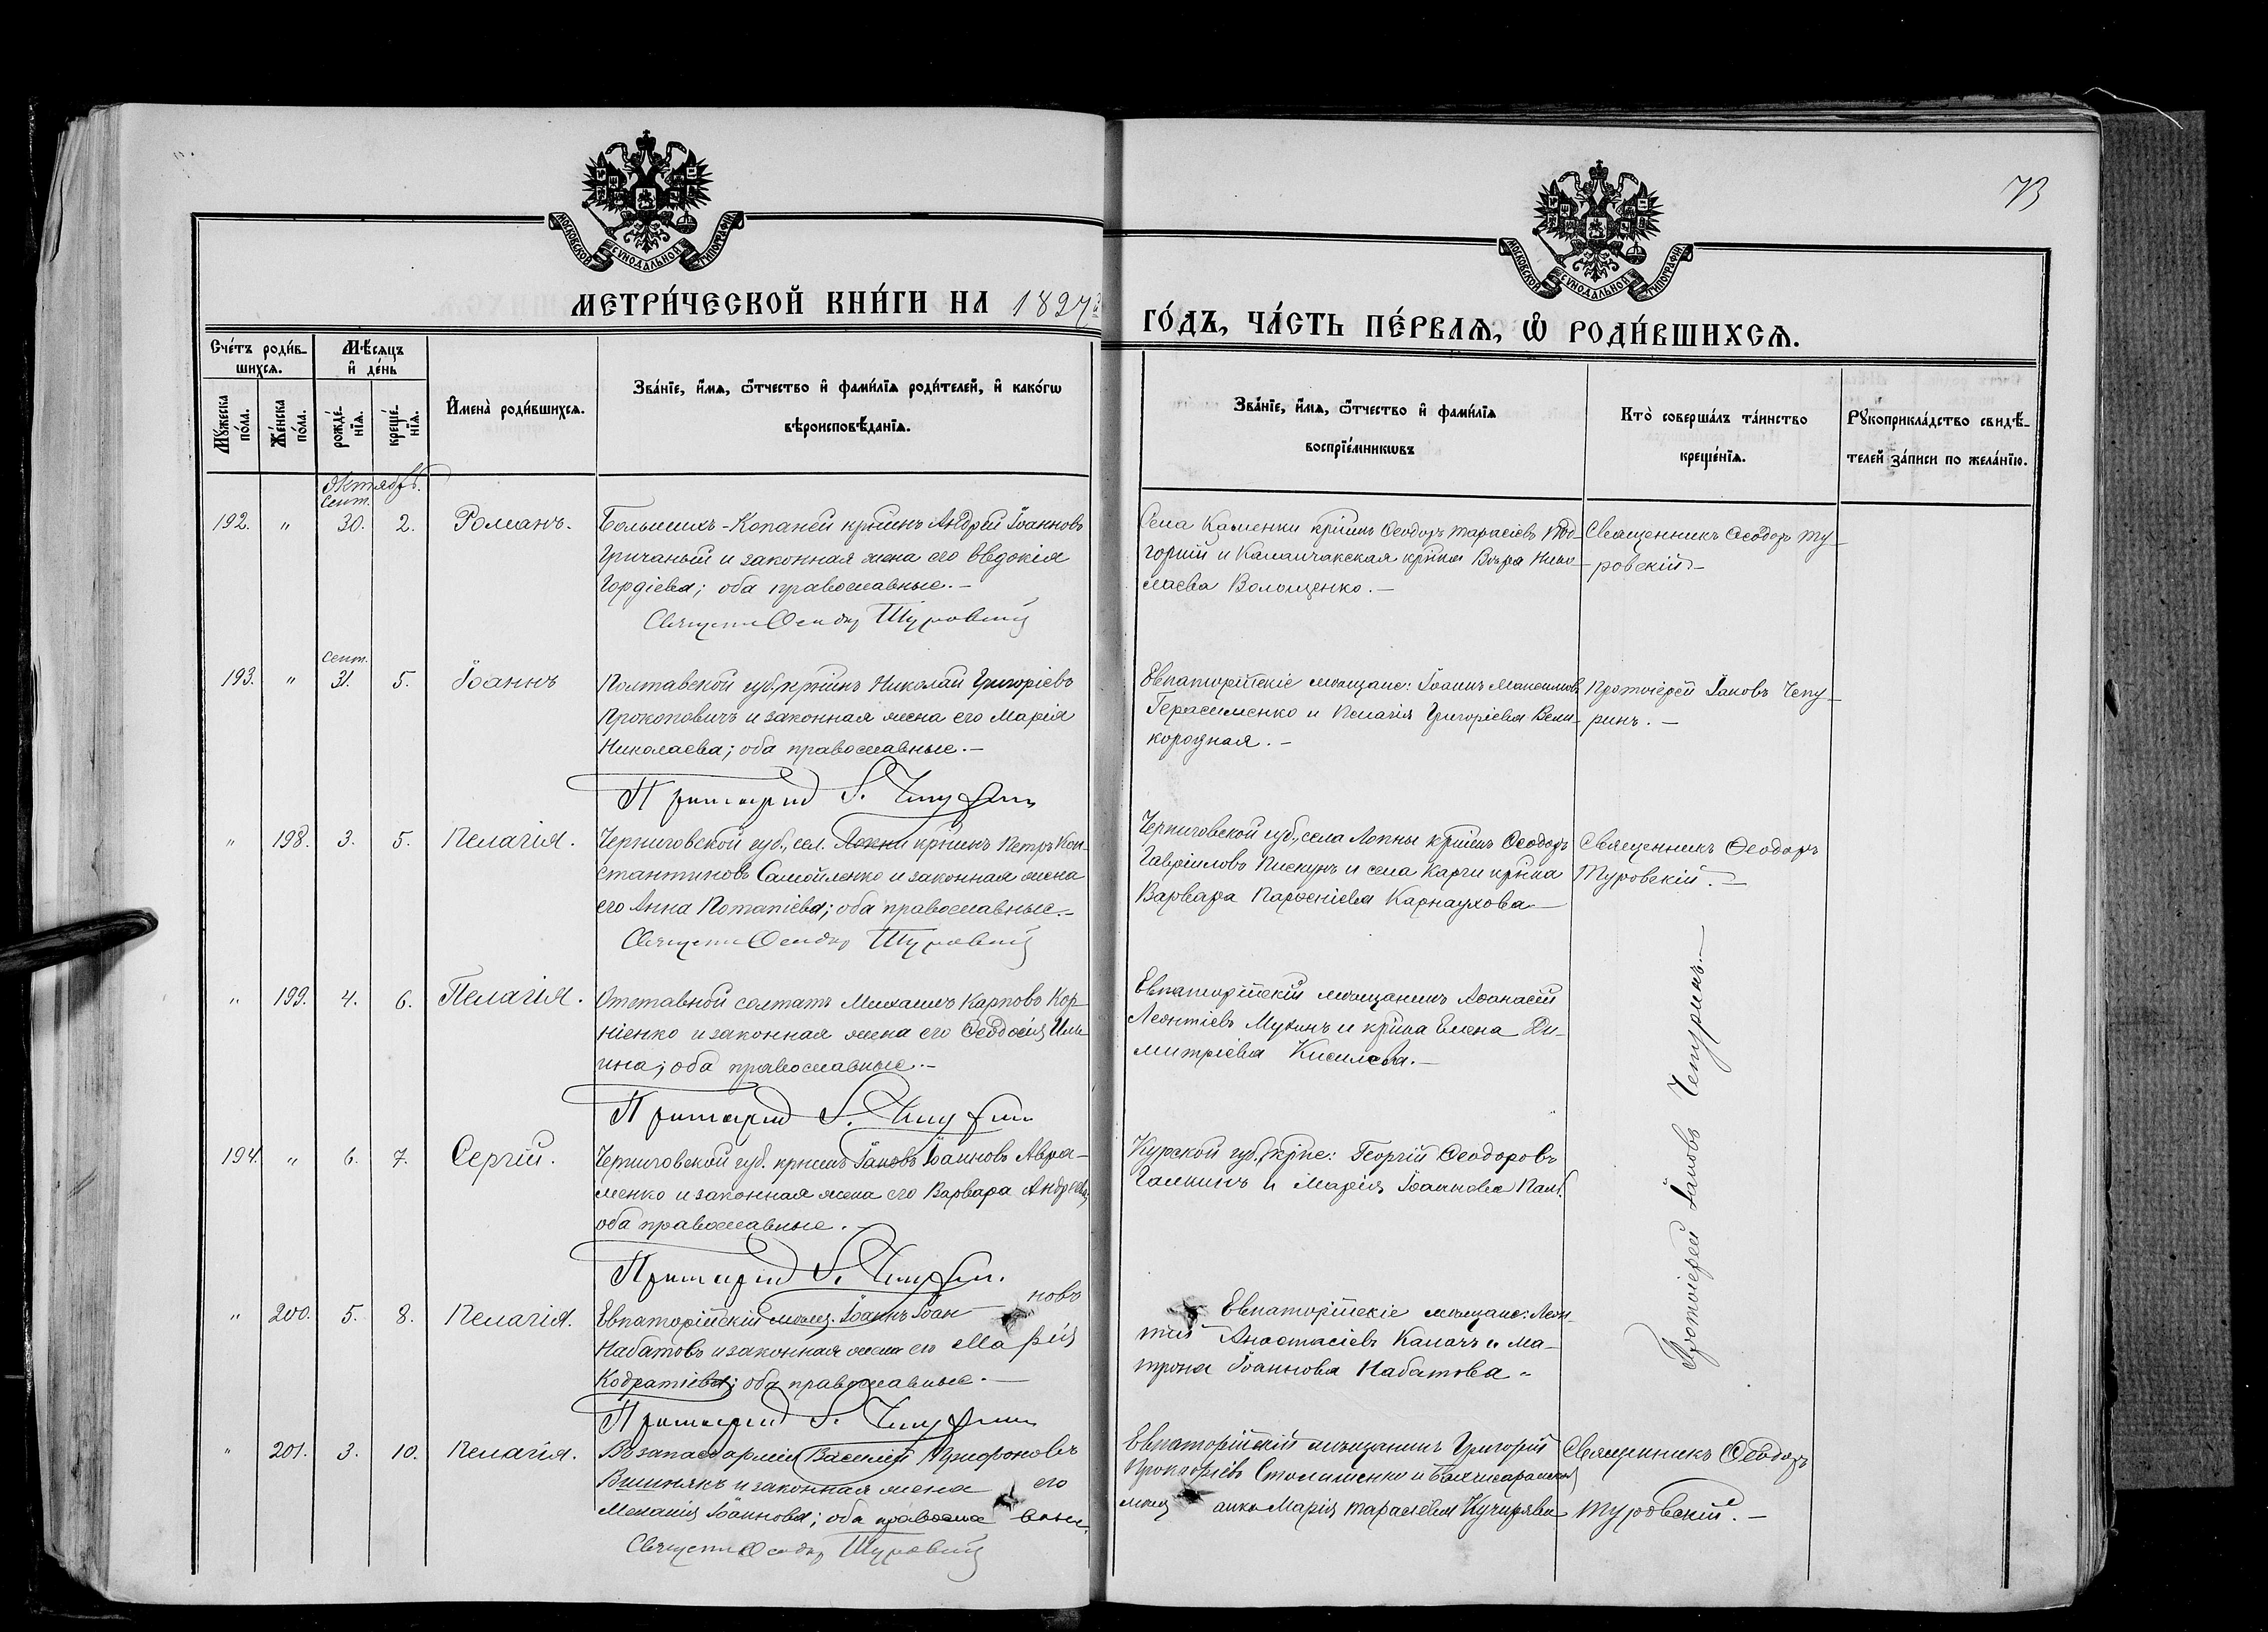 73
МОСКОВСКОЙ СѴНОДАЛЬНОЙ ТИПОГРАФІИ
МОСКОВСКОЙ СѴНОДАЛЬНОЙ ТИПОГРАФІИ
МЕТРИ́ЧЕСКОЙ КНИ́ГИ НА 1897й
ГО́ДЪ, ЧА́СТЬ ПЕ́РВАЯ, Ѡ РОДИ́ВШИХСЯ.
Сче́тъ роди́в-
шихся.
Мѣ́сяцъ
и́ де́нь
Му́жеска
по́ла.
Же́нска
по́ла.
рожде́-
нїя.
креще́-
нїя.
И҆мена̀ роди́вшихся.
Зва́нїе, и҆́мя, ѻ҆́тчество и҆ фами́лїя роди́телей, и҆ како́гѡ
вѣроисповѣ́данїя.
Зва́нїе, и҆́мя, ѻ҆́тчество и҆ фами́лїя
воспрїе́мникѡвъ
Кто̀ соверша́лъ та́инство
креще́нїя.
Рꙋкоприкла́дство свидѣ́-
телей за́писи по жела́нїю.
Октябрь.
Сент.
192. " 30. 2. Романъ.
Большихъ-Копаней кр̃нинъ Андрей Іоанновъ
Гричаный и законная жена его Евдокія
Гордіева; оба православные.-
Священн Феодор Туровский
Села Каменки кр̃нинъ Ѳеодоръ Тарасіевъ Под-
горный и Каланчакская кр̃нка Вѣра Нико-
лаева Волощенко.-
Священникъ Ѳеодоръ Ту-
ровскій.-
Сент.
193. " 31. 5. Іоаннъ
Полтавской губ. кр̃нинъ Николай Григоріевъ
Прокоповичъ и законная жена его Марія
Николаева; оба православные.-
Протоіерей І. Чепурин
Евпаторійскіе мѣщане: Іоаннъ Максимовъ
Герасименко и Пелагія Григоріева Вели-
кородная.-
Протоіерей Іаковъ Чепу-
ринъ.-
" 198. 3. 5. Пелагія.
Черниговской губ., сел. Локни кр̃нинъ Петръ Кон-
стантиновъ Самойленко и законная жена
его Анна Потапіева; оба православные.-
Священн Феодор Туровский
Черниговской губ., села Лопны кр̃нинъ Ѳеодоръ
Гавріиловъ Пискунъ и села Карги кр̃нка
Варвара Парѳеніева Карнаухова-
Священникъ Ѳеодоръ
Туровскій.-
" 199. 4. 6. Пелагія.
Отставной солтатъ Михаилъ Карповъ Кор-
ніенко и законная жена его Ѳеодосія Иль-
ина; оба православные.-
Протоіерей І. Чепурин
Евпаторійскій мѣщанинъ Аѳанасій
Леонтіевъ Мухинъ и кр̃нка Елена Ди-
митріева Киселева.-
194. " 6. 7. Сергій.
Черниговской губ. кр̃нинъ Іаковъ Іоанновъ Авра-
менко и законная жена его Варвара Андреева,
оба православные.-
Протоіерей І. Чепурин.
Курской губ. кр̃не: Георгій Ѳеодоровъ
Галкинъ и Марія Іоаннова
Протоіерей Іаковъ Чепуринъ.-
" 200. 5. 8. Пелагія.
Евпаторійскій мѣщ. Іоаннъ Іоан новъ
Набатовъ и законная жена его Марія
Кодратіева; оба православные.-
Протоіерей І. Чепурин
Евпаторійскіе мѣщане: Леон-
тій Анастасіевъ Капачъ и Ма-
трона Іоаннова Набатова-
" 201. 3. 10. Пелагія.
Въ запасѣ арміи Василій Трифоновъ
Вишнякъ и законная жена его
Меланія Іоаннова; оба православные.
Священн Феодор Туровский
Евпаторійскій мѣщанинъ Григорій
Прокофіевъ и Бахчисарайская
мѣщ анка Марія Тарасіева
Священникъ Ѳеодоръ
Туровскій.-